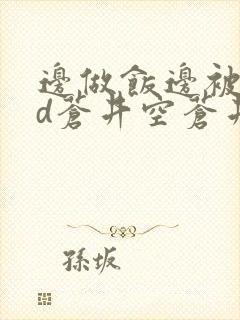 邊做飯邊被
d蒼井空蒼井
孫坂